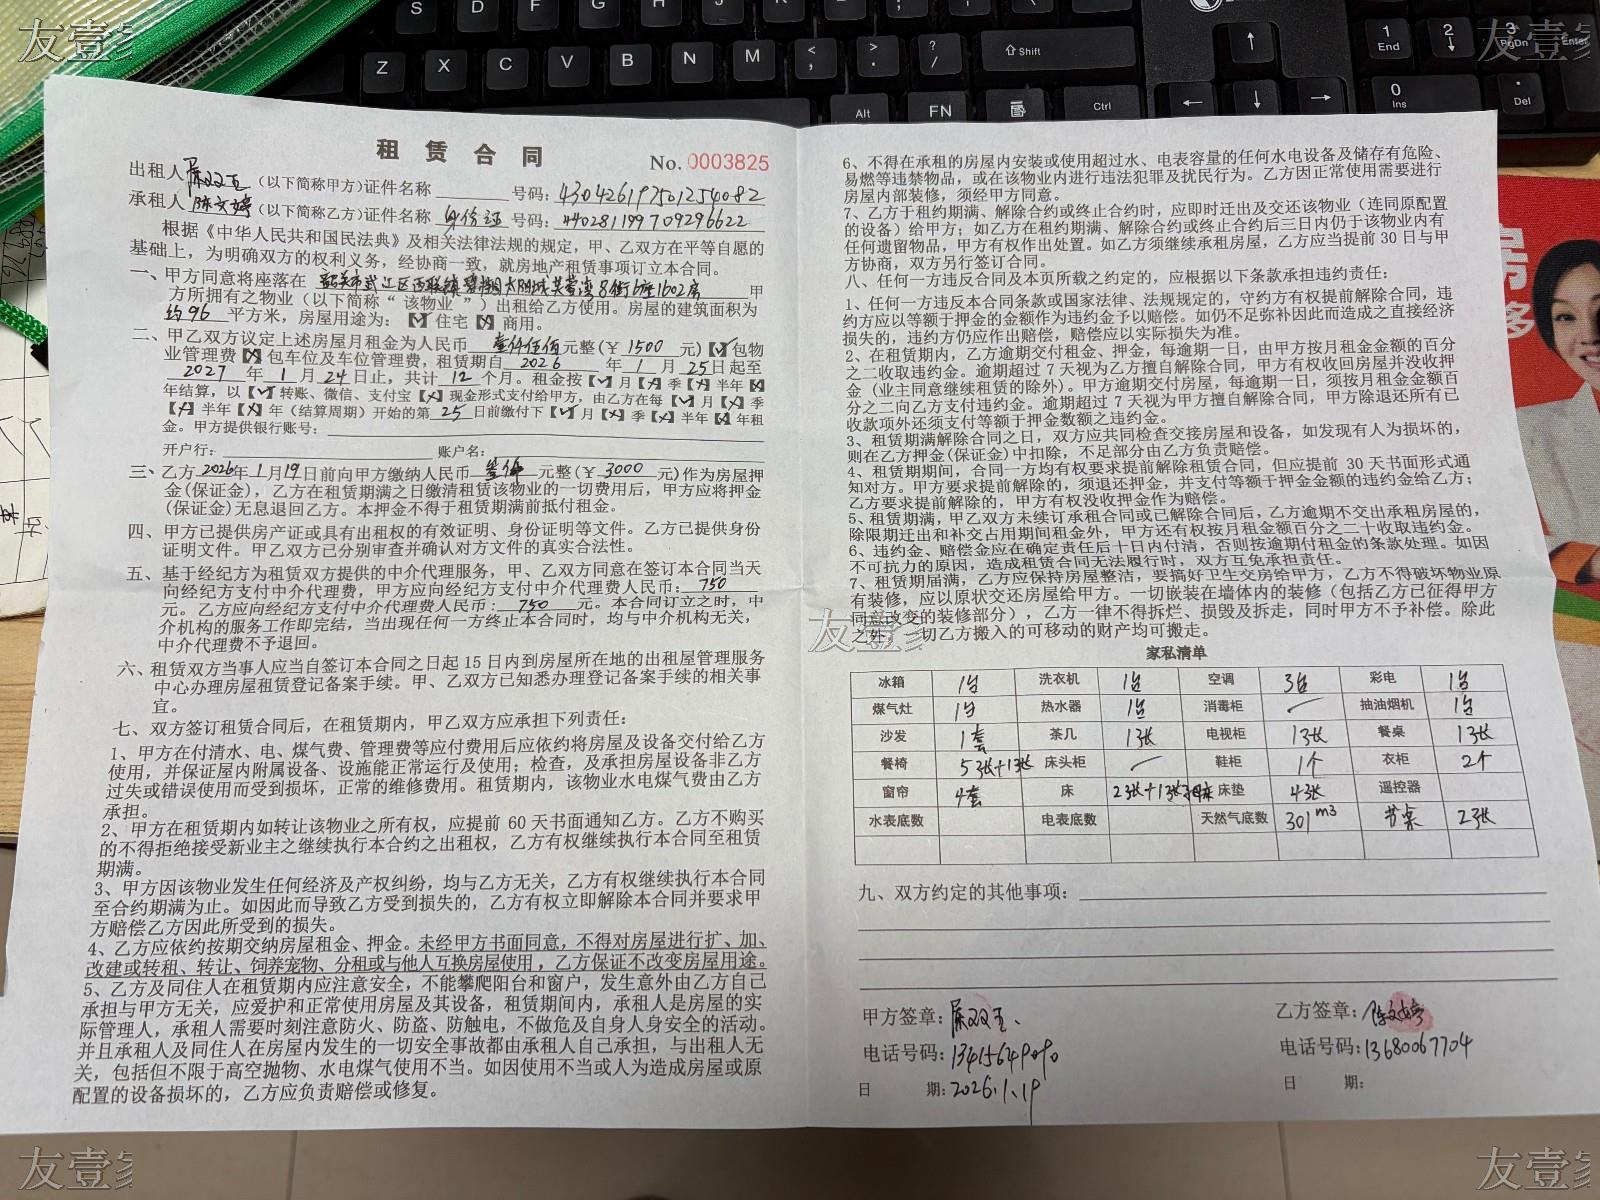 友壹家
友壹家
租赁合同
No. 0003825
出租人屈双玉(以下简称甲方)证件名称 号码: 430426197501254082
承租人陈文婷(以下简称乙方)证件名称 身份证 号码: 440281199709296622
根据《中华人民共和国民法典》及相关法律法规的规定，甲、乙双方在平等自愿的
基础上，为明确双方的权利义务，经协商一致，就房地产租赁事项订立本合同。
一、甲方同意将座落在 韶关市武江区西联镇碧桂园太阳城芙蓉湾8街6座1602房 甲
方所拥有之物业（以下简称“该物业”）出租给乙方使用。房屋的建筑面积为
约96 平方米，房屋用途为：【✓】住宅【✗】商用。
二、甲乙双方议定上述房屋月租金为人民币 壹仟伍佰 元整(¥ 1500 元)【✓】包物
业管理费【✗】包车位及车位管理费，租赁期自 2026 年 1 月 25 日起至
2027 年 1 月 24 日止，共计 12 个月。租金按【✓】月【✗】季【✗】半年【✗】
年结算，以【✓】转账、微信、支付宝【✗】现金形式支付给甲方，由乙方在每【✓】月【✗】季
【✗】半年【✗】年（结算周期）开始的第 25 日前缴付下【✓】月【✗】季【✗】半年【✗】年租
金。甲方提供银行账号：
开户行： 账户名：
三、乙方2026年1月19日前向甲方缴纳人民币 叁仟 元整(¥ 3000 元)作为房屋押
金(保证金)，乙方在租赁期满之日缴清租赁该物业的一切费用后，甲方应将押金
(保证金)无息退回乙方。本押金不得于租赁期满前抵付租金。
四、甲方已提供房产证或具有出租权的有效证明、身份证明等文件。乙方已提供身份
证明文件。甲乙双方已分别审查并确认对方文件的真实合法性。
五、基于经纪方为租赁双方提供的中介代理服务，甲、乙双方同意在签订本合同当天
向经纪方支付中介代理费，甲方应向经纪方支付中介代理费人民币：750
元。乙方应向经纪方支付中介代理费人民币：750 元。本合同订立之时，中
介机构的服务工作即完结，当出现任何一方终止本合同时，均与中介机构无关，
中介代理费不予退回。
六、租赁双方当事人应当自签订本合同之日起15日内到房屋所在地的出租屋管理服务
中心办理房屋租赁登记备案手续。甲、乙双方已知悉办理登记备案手续的相关事
宜。
七、双方签订租赁合同后，在租赁期内，甲乙双方应承担下列责任：
1、甲方在付清水、电、煤气费、管理费等应付费用后应依约将房屋及设备交付给乙方
使用，并保证屋内附属设备、设施能正常运行及使用；检查，及承担房屋设备非乙方
过失或错误使用而受到损坏，正常的维修费用。租赁期内，该物业水电煤气费由乙方
承担。
2、甲方在租赁期内如转让该物业之所有权，应提前60天书面通知乙方。乙方不购买
的不得拒绝接受新业主之继续执行本合约之出租权，乙方有权继续执行本合同至租赁
期满。
3、甲方因该物业发生任何经济及产权纠纷，均与乙方无关，乙方有权继续执行本合同
至合约期满为止。如因此而导致乙方受到损失的，乙方有权立即解除本合同并要求甲
方赔偿乙方因此所受到的损失。
4、乙方应依约按期交纳房屋租金、押金。未经甲方书面同意，不得对房屋进行扩、加、
改建或转租、转让、饲养宠物、分租或与他人互换房屋使用，乙方保证不改变房屋用途。
5、乙方及同住人在租赁期内应注意安全，不能攀爬阳台和窗户，发生意外由乙方自己
承担与甲方无关，应爱护和正常使用房屋及其设备，租赁期间内，承租人是房屋的实
际管理人，承租人需要时刻注意防火、防盗、防触电，不做危及自身人身安全的活动。
并且承租人及同住人在房屋内发生的一切安全事故都由承租人自己承担，与出租人无
关，包括但不限于高空抛物、水电煤气使用不当。如因使用不当或人为造成房屋或原
配置的设备损坏的，乙方应负责赔偿或修复。
6、不得在承租的房屋内安装或使用超过水、电表容量的任何水电设备及储存有危险、
易燃等违禁物品，或在该物业内进行违法犯罪及扰民行为。乙方因正常使用需要进行
房屋内部装修，须经甲方同意。
7、乙方于租约期满、解除合约或终止合约时，应即时迁出及交还该物业（连同原配置
的设备）给甲方；如乙方在租约期满、解除合约或终止合约后三日内仍于该物业内有
任何遗留物品，甲方有权作出处置。如乙方须继续承租房屋，乙方应当提前30日与甲
方协商，双方另行签订合同。
八、任何一方违反合同及本页所载之约定的，应根据以下条款承担违约责任：
1、任何一方违反本合同条款或国家法律、法规规定的，守约方有权提前解除合同，违
约方应以等额于押金的金额作为违约金予以赔偿。如仍不足弥补因此而造成之直接经济
损失的，违约方仍应作出赔偿，赔偿应以实际损失为准。
2、在租赁期内，乙方逾期交付租金、押金，每逾期一日，由甲方按月租金金额的百分
之二收取违约金。逾期超过7天视为乙方擅自解除合同，甲方有权收回房屋并没收押
金（业主同意继续租赁的除外）。甲方逾期交付房屋，每逾期一日，须按月租金金额百
分之二向乙方支付违约金。逾期超过7天视为甲方擅自解除合同，甲方除退还所有已
收款项外还须支付等额于押金数额之违约金。
3、租赁期满解除合同之日，双方应共同检查交接房屋和设备，如发现有人为损坏的，
则在乙方押金(保证金)中扣除，不足部分由乙方负责赔偿。
4、租赁期期间，合同一方均有权要求提前解除租赁合同，但应提前30天书面形式通
知对方。甲方要求提前解除的，须退还押金，并支付等额于押金金额的违约金给乙方；
乙方要求提前解除的，甲方有权没收押金作为赔偿。
5、租赁期满，甲乙双方未续订承租合同或已解除合同后，乙方逾期不交出承租房屋的，
除限期迁出和补交占用期间租金外，甲方还有权按月租金额百分之二十收取违约金。
6、违约金、赔偿金应在确定责任后十日内付清，否则按逾期付租金的条款处理。如因
不可抗力的原因，造成租赁合同无法履行时，双方互免承担责任。
7、租赁期届满，乙方应保持房屋整洁，要搞好卫生交房给甲方，乙方不得破坏物业原
有装修，应以原状交还房屋给甲方。一切嵌装在墙体内的装修（包括乙方已征得甲方
同意改变的装修部分），乙方一律不得拆烂、损毁及拆走，同时甲方不予补偿。除此
之外，一切乙方搬入的可移动的财产均可搬走。
友壹家
家私清单
冰箱 1台 洗衣机 1台 空调 3台 彩电 1台
煤气灶 1台 热水器 1台 消毒柜 抽油烟机 1台
沙发 1套 茶几 1张 电视柜 1张 餐桌 1张
餐椅 5张+1张 床头柜 鞋柜 1个 衣柜 2个
窗帘 4套 床 2张+1张 床垫 4张 遥控器
水表底数 电表底数 天然气底数 301m3 书桌 2张
九、双方约定的其他事项：
甲方签章：屈双玉
乙方签章：陈文婷
电话号码：13415649090
电话号码：13680067704
日 期：2026.1.19
日 期：
友壹家
友壹家